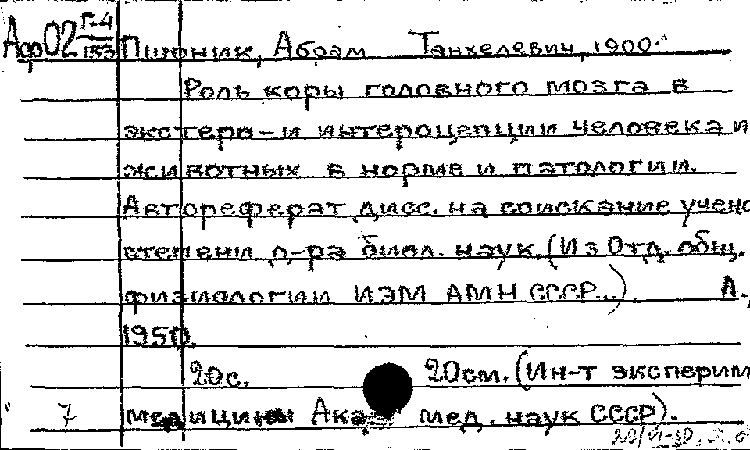 Афр02 Г-4/153 Пшоник, Абрам Танхелевич, 1900-
Роль коры головного мозга в
экстеро- и интероцепции человека и
животных в норме и патологии.
Автореферат дисс. на соискание учено
степени д-ра биол. наук. (Из Отд. общ.
физиологии ИЭМ АМН СССР...). Л.,
1950.
20с. 20см. (Ин-т эксперим
7 медицины Акад мед. наук СССР).